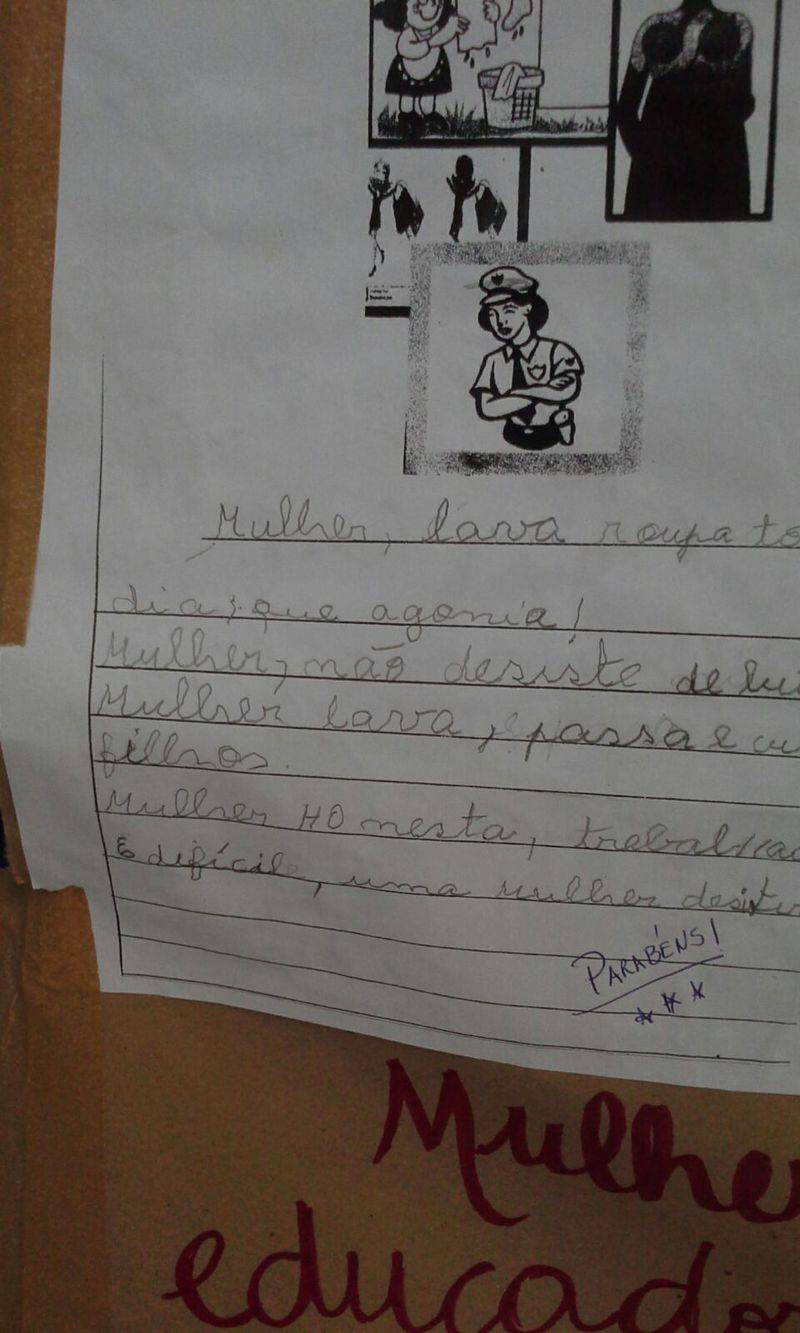 Mulher, lava roupa to
dia, que agonia!
Mulher, não desiste de lu
Mulher lava, passa e cu
filhos.
Mulher HOnesta, trabalha
É difícil, uma mulher desist
PARABÉNS!
Mulhe
educado